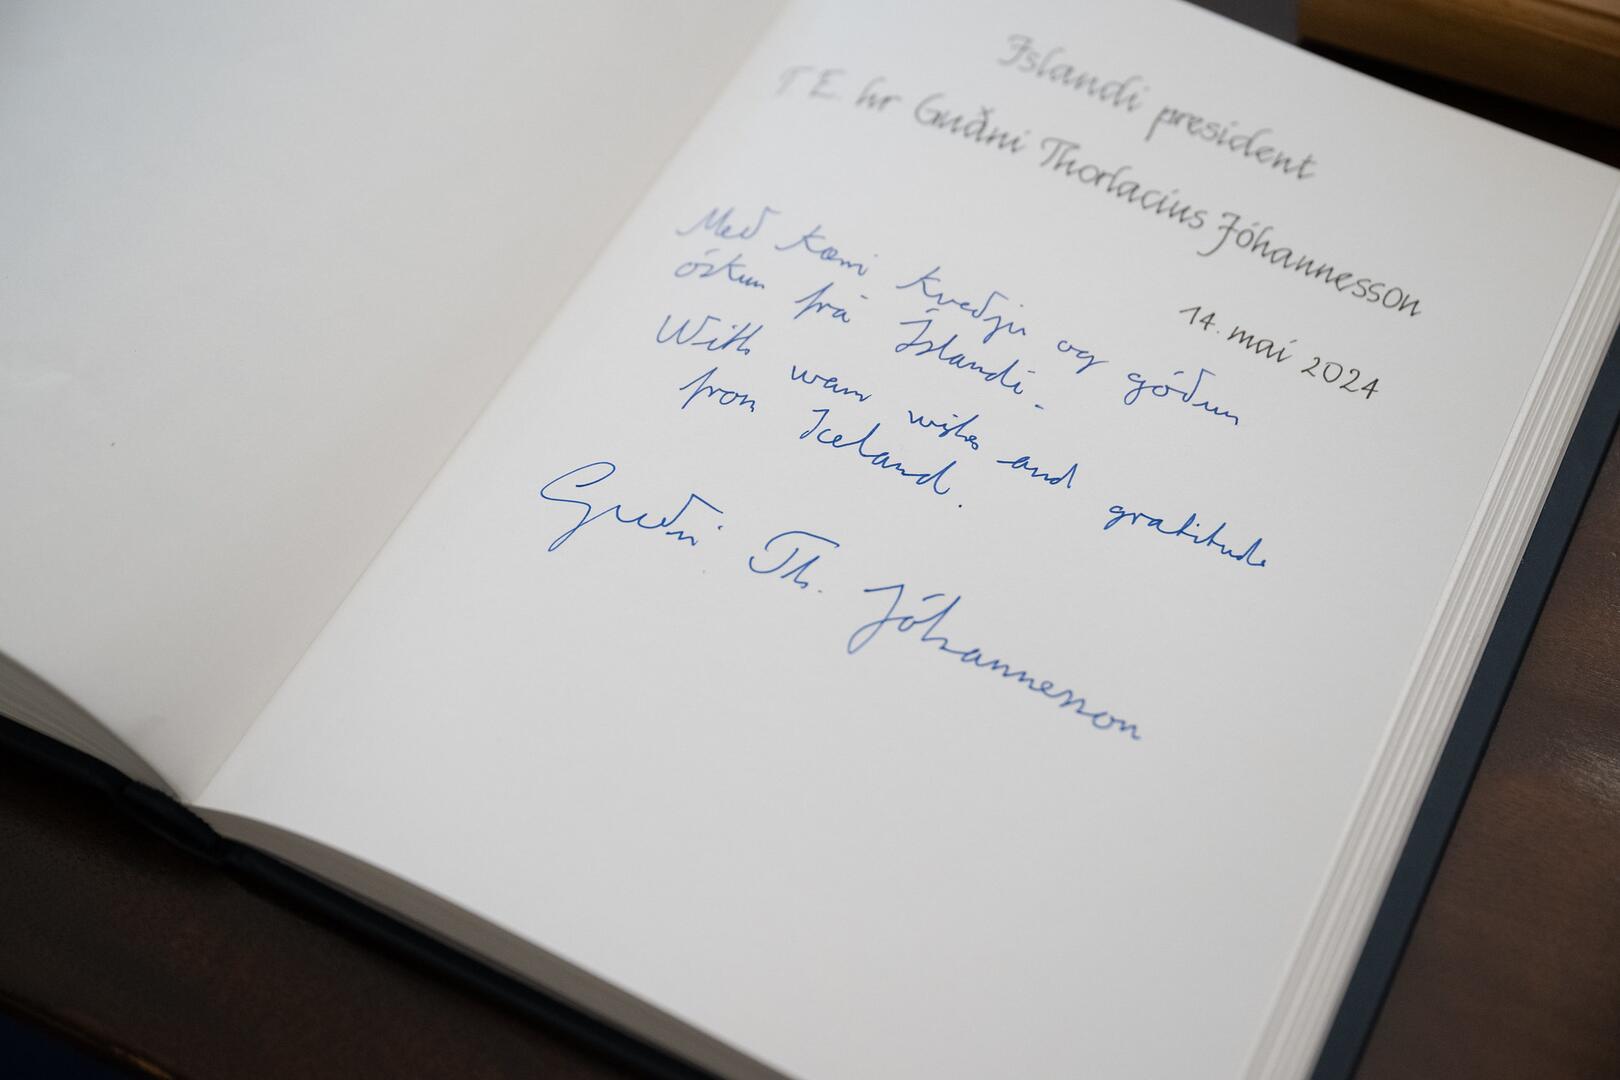 Islandi president
T.E. hr Guðni Thorlacius Jóhannesson
14. mai 2024
Með kærri kveðju og góðum
óskum frá Íslandi.
With warm wishes and gratitude
from Iceland.
Guðni Th. Jóhannesson